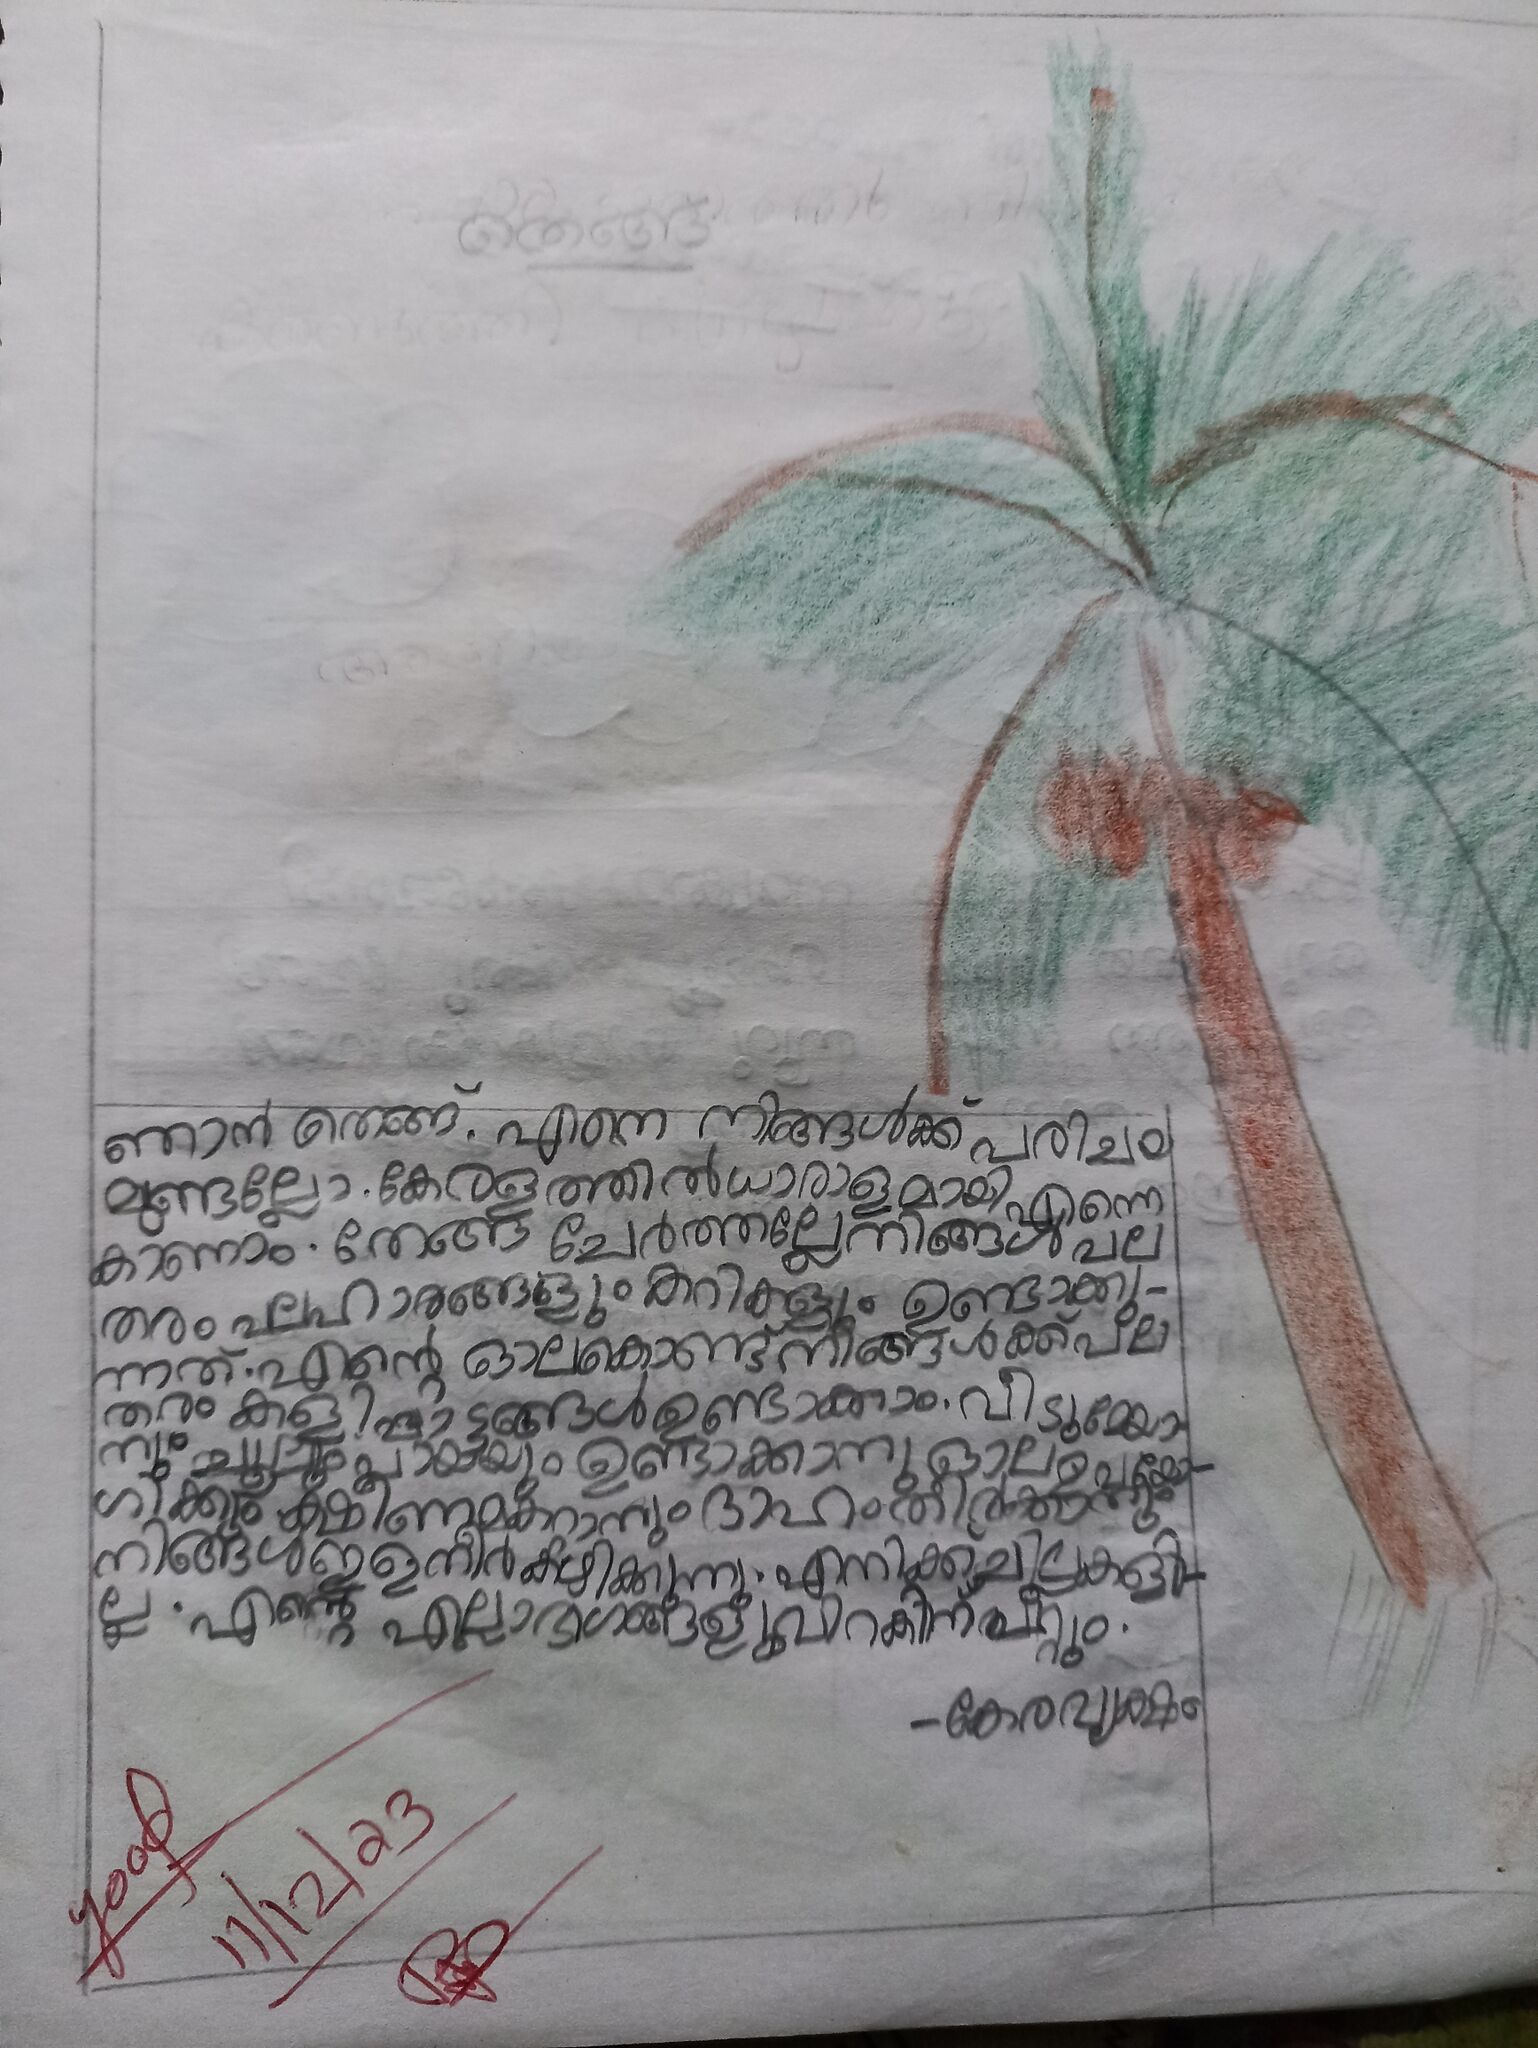 തെങ്ങ്
ഞാൻ തെങ്ങ്. എന്നെ നിങ്ങൾക്ക് പരിചയ
മുണ്ടല്ലോ. കേരളത്തിൽ ധാരാളമായി എന്നെ
കാണാം. തേങ്ങ ചേർത്തല്ലേ നിങ്ങൾ പല
തരം പലഹാരങ്ങളും കറികളും ഉണ്ടാക്കു-
ന്നത്. എന്റെ ഓലകൊണ്ട് നിങ്ങൾക്ക് പല
തരം കളിപ്പാട്ടങ്ങൾ ഉണ്ടാക്കാം. വീടുമേയാ-
നും ചൂലും ഉണ്ടാക്കാനു ഓല ഉപയോ-
ഗിക്കും ക്ഷീണമകറ്റാനും ദാഹം തീർക്കാനും
നിങ്ങൾ ഇളനീർ കുടിക്കുന്നു. എനിക്ക് ചില്ലകളി-
ല്ല. എന്റെ എല്ലാ ഭാഗങ്ങളും വിറകിന് പറ്റും.
- കേരവൃക്ഷം
good
11/12/23